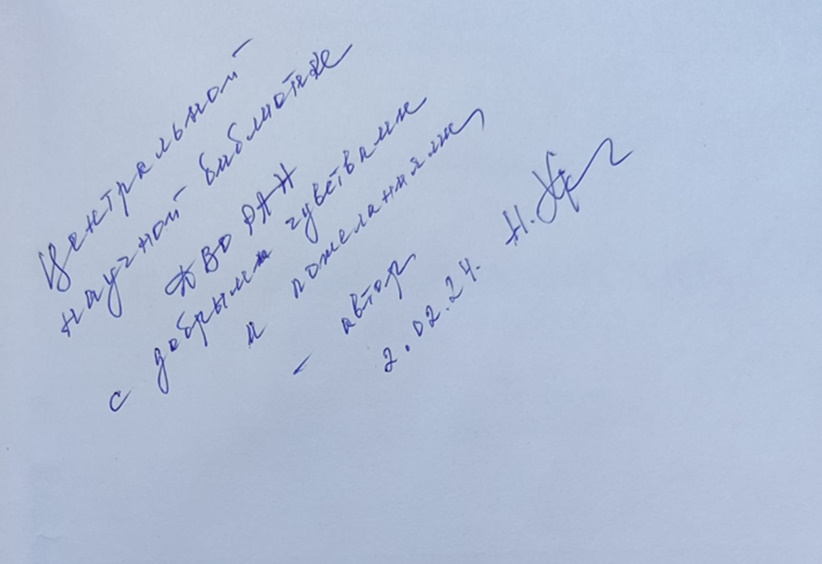 Центральной
научной библиотеке
ДВО РАН
с добрыми чувствами
и пожеланиями,
– автор
2.02.24. Н.